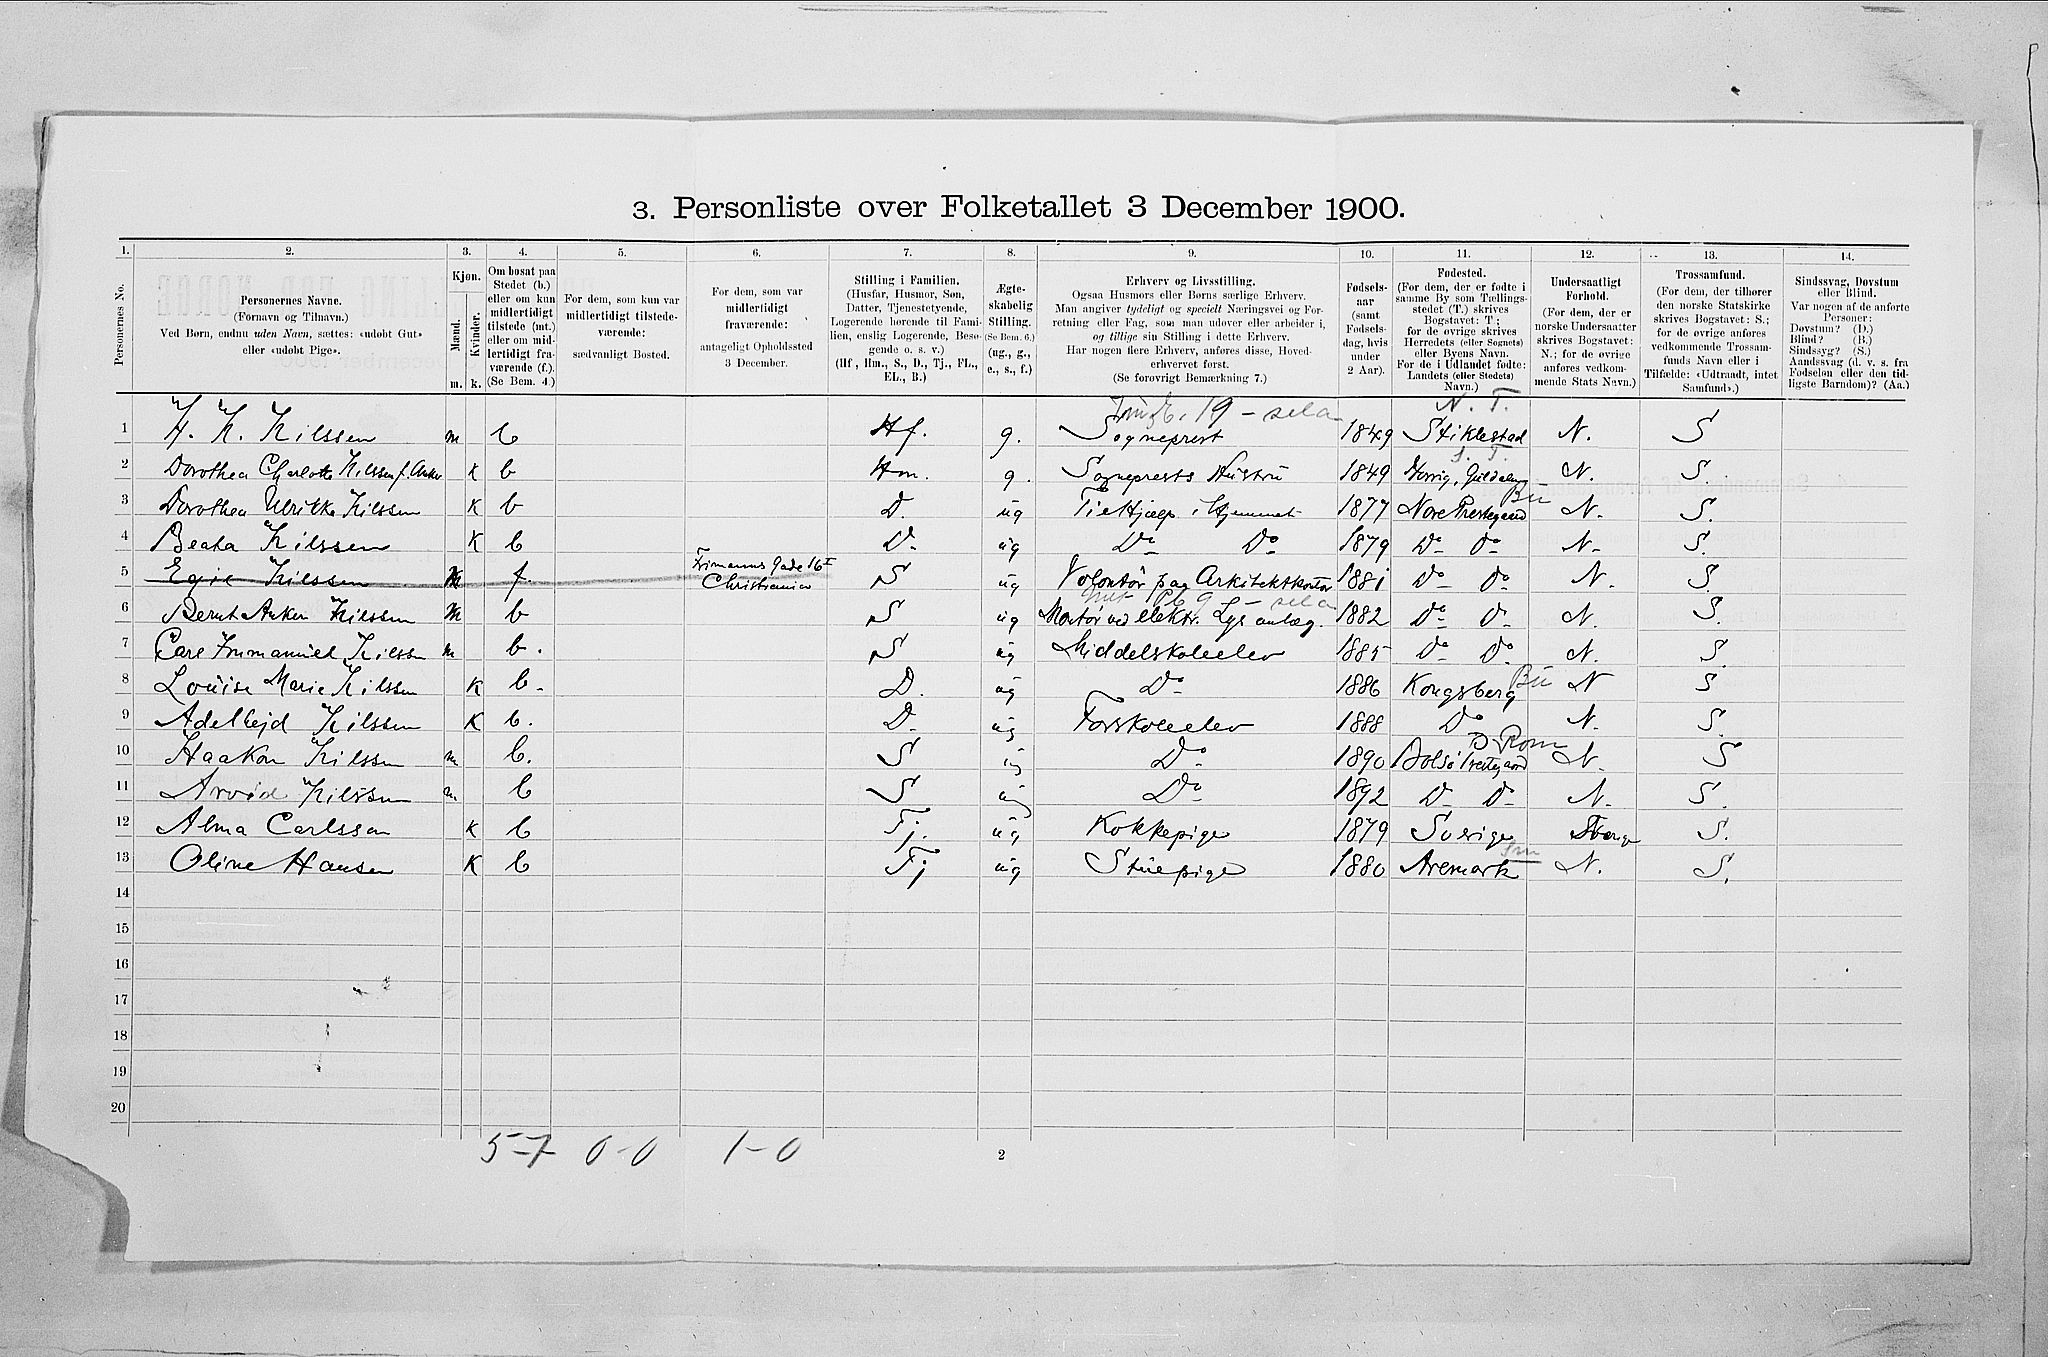 3. Personliste over Folketallet 3 December 1900.
1. 2. 3. 4. 5. 6. 7. 8. 9. 10. 11. 12. 13. 14.
Personernes No.
Personernes Navne.
(Fornavn og Tilnavn.)
Ved Børn, endnu uden Navn, sættes: «udøbt Gut»
eller «udøbt Pige».
Kjøn.
Mænd.
Kvinder.
m. k.
Om bosat paa
Stedet (b.)
eller om kun
midlertidigt
tilstede (mt.)
eller om mid-
lertidigt fra-
værende (f.).
(Se Bem. 4.)
For dem, som kun var
midlertidigt tilstede-
værende:
sædvanligt Bosted.
For dem, som var
midlertidigt
fraværende:
antageligt Opholdssted
3 December.
Stilling i Familien.
(Husfar, Husmor, Søn,
Datter, Tjenestetyende,
Logerende hørende til Fami-
lien, enslig Logerende, Besø-
gende o. s. v.)
(Hf., Hm., S., D., Tj., FL.,
EL., B.)
Ægte-
skabelig
Stilling.
(Se Bem. 6.)
(ug., g.,
e., s., f.)
Erhverv og Livsstilling.
Ogsaa Husmors eller Børns særlige Erhverv.
Man angiver tydeligt og specielt Næringsvei og For-
retning eller Fag, som man udøver eller arbeider i,
og tillige sin Stilling i dette Erhverv.
Har nogen flere Erhverv, anføres disse, Hoved-
erhvervet først.
(Se forøvrigt Bemærkning 7.)
Fødsels-
aar
(samt
Fødsels-
dag, hvis
under
2 Aar).
Fødested.
(For dem, der er fødte i
samme By som Tællings-
stedet (T.) skrives
Bogstavet: T.;
for de øvrige skrives
Herredets (eller Sognets)
eller Byens Navn.
For de i Udlandet fødte:
Landets (eller Stedets)
Navn.)
Undersaatligt
Forhold.
(For dem, der er
norske Undersaatter
skrives Bogstavet:
N.; for de øvrige
anføres vedkom-
mende Stats Navn.)
Trossamfund.
(For dem, der tilhører
den norske Statskirke
skrives Bogstavet: S.;
for de øvrige anføres
vedkommende Trossam-
funds Navn eller i
Tilfælde: «Udtraadt, intet
Samfund».)
Sindssvag, Døvstum
eller Blind.
Var nogen af de anførte
Personer:
Døvstum? (D.)
Blind? (B.)
Sindssyg? (S.)
Aandssvag (d. v. s. fra
Fødselen eller den tid-
ligste Barndom)? (Aa.)
19 – sela N. T.
1 H. K. Nilssen m b Hf. g. Sogneprest 1849 Stiklestad N. S
S. T.
2 Dorothea Charlotte Nilssen f. Anker K b Hm. g. Sogneprests Hustru 1849 Guldalen N. S.
Bu
3 Dorothea Ulrikke Nilssen K b D. ug Til Hjælp i Hjemmet 1877 Nore Prestegaard N. S.
4 Beata Nilssen K b D. ug Do Do 1879 Do Do N. S.
Frimanns Gade 16 I
5 Egil Nilssen M f. Christiania S ug Volontør paa Arkitektkontor 1881 Do Do N. S.
9 – sela
6 Bernt Anker Nilssen M b S ug Montør ved elektr. Lys anlæg. 1882 Do Do N. S.
7 Carl Immanuel Nilssen m b. S ug Middelskoleelev 1885 Do Do N. S.
Bu
8 Louise Marie Nilssen K b. D. ug Do 1886 Kongsberg N S
9 Adelheid Nilssen K b. D. ug Forskoleelev 1888 Do N. S.
Rom
10 Haakon Nilssen m b. S ug Do 1890 Bolsø Prestegaard N. S
11 Arvid Nilssen m b S ug Do 1892 Do Do N. S.
12 Alma Carlsson K b Tj. ug Kokkepige 1879 Sverige Sverige S.
Sm
13 Oline Hansen K b Tj ug Stuepige 1880 Aremark N. S.
14
15
16
17
18
19
20
5-7 0-0 1-0
2